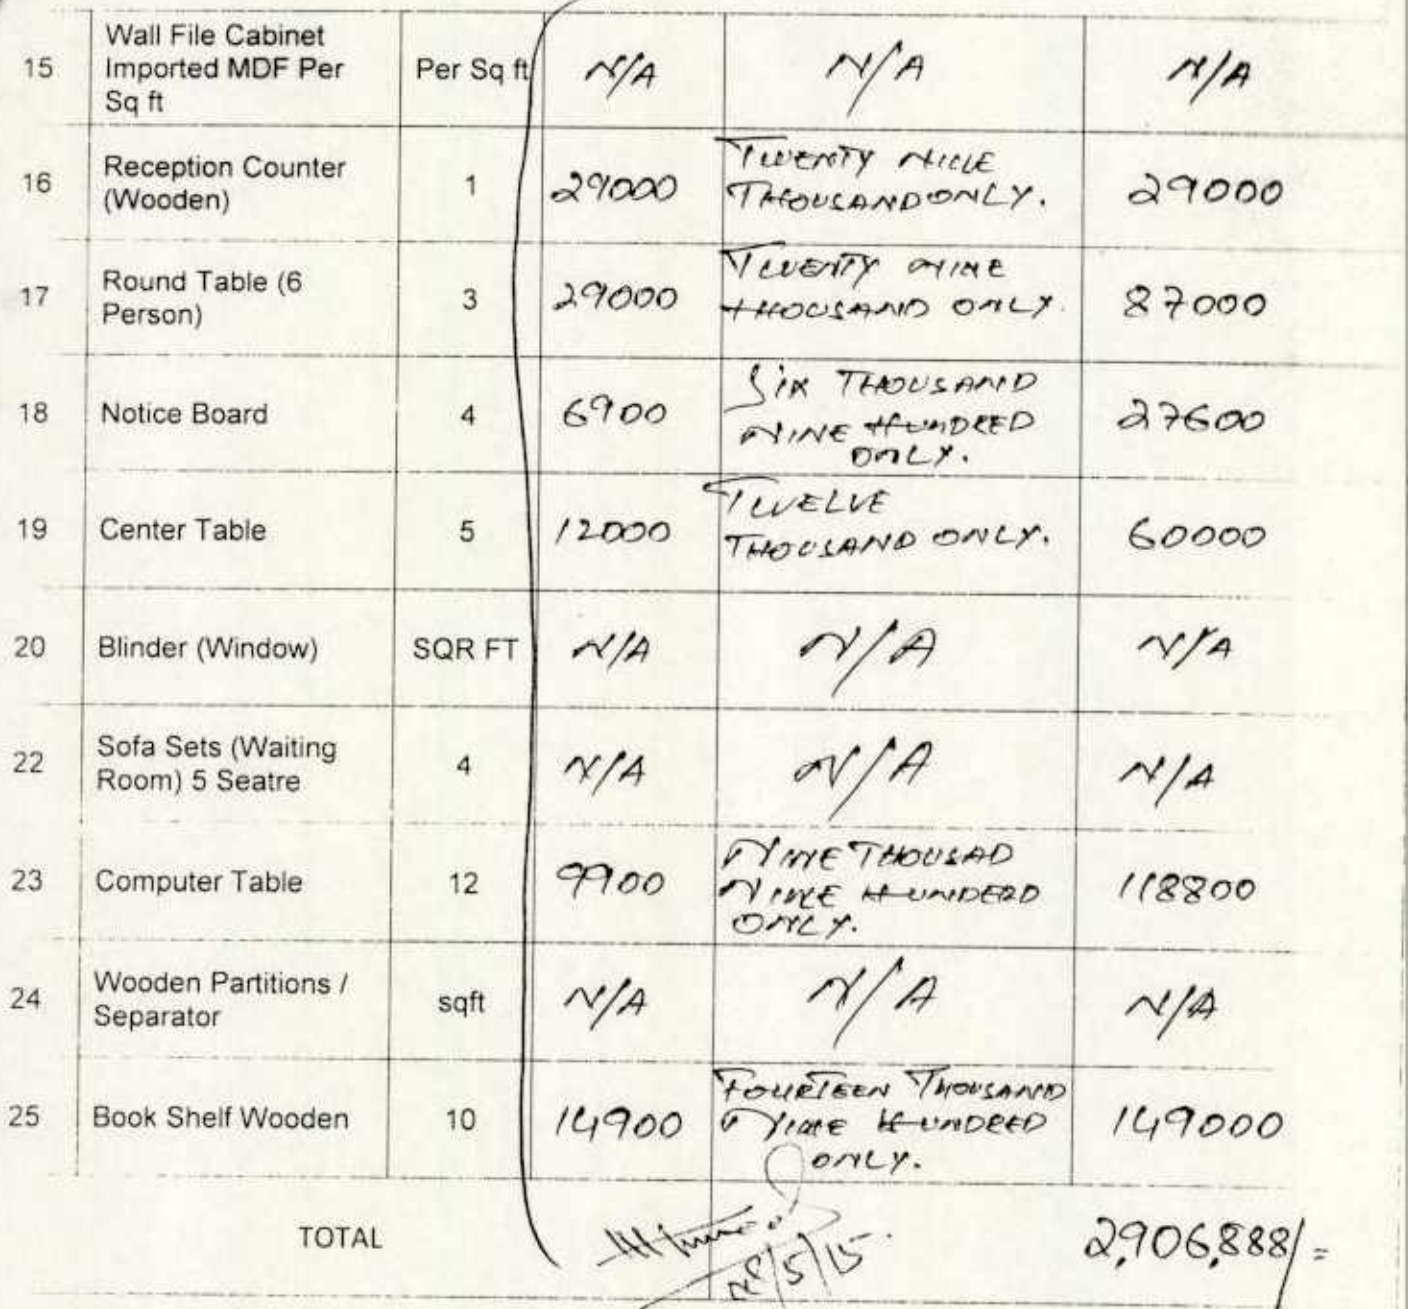 15 Wall File Cabinet Imported MDF Per Sq ft Per Sq ft N/A N/A N/A
16 Reception Counter (Wooden) 1 29000 TWENTY NINE THOUSAND ONLY. 29000
17 Round Table (6 Person) 3 29000 TWENTY NINE THOUSAND ONLY. 87000
18 Notice Board 4 6900 SIX THOUSAND NINE HUNDRED ONLY. 27600
19 Center Table 5 12000 TWELVE THOUSAND ONLY. 60000
20 Blinder (Window) SQR FT N/A N/A N/A
22 Sofa Sets (Waiting Room) 5 Seatre 4 N/A N/A N/A
23 Computer Table 12 9900 NINE THOUSAD NINE HUNDERD ONLY. 118800
24 Wooden Partitions / Separator sqft N/A N/A N/A
25 Book Shelf Wooden 10 14900 FOURTEEN THOUSAND NINE HUNDRED ONLY. 149000
TOTAL 2,906,888/=
/5/15.